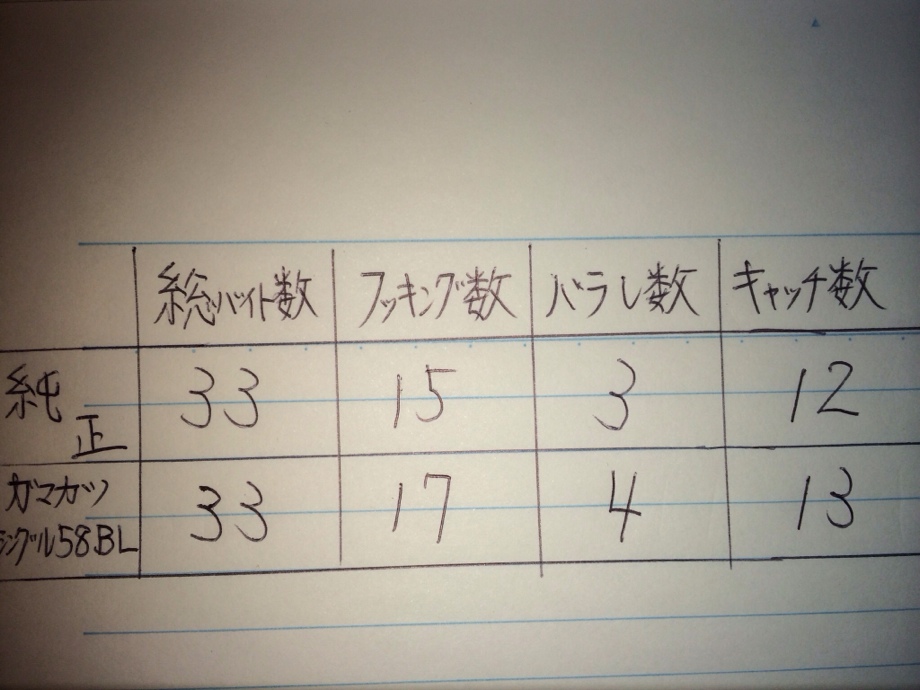 総バイト数 フッキング数 バラし数 キャッチ数
純正 33 15 3 12
ガマカツ
シングル58BL 33 17 4 13